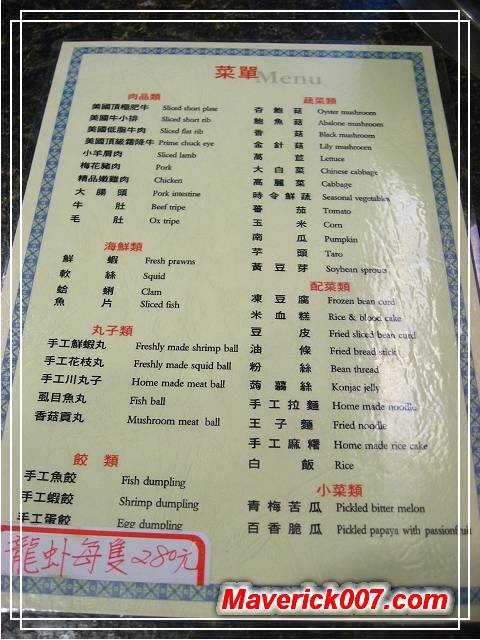 菜單 Menu
肉品類
美國頂極肥牛 Sliced short plate
美國牛小排 Sliced short rib
美國低脂牛肉 Sliced flat rib
美國頂級霜降牛 Prime chuck eye
小羊肩肉 Sliced lamb
梅花豬肉 Pork
精品嫩雞肉 Chicken
大腸頭 Pork intestine
牛肚 Beef tripe
毛肚 Ox tripe
海鮮類
鮮蝦 Fresh prawns
軟絲 Squid
蛤蜊 Clam
魚片 Sliced fish
丸子類
手工鮮蝦丸 Freshly made shrimp ball
手工花枝丸 Freshly made squid ball
手工川丸子 Home made meat ball
虱目魚丸 Fish ball
香菇貢丸 Mushroom meat ball
餃類
手工魚餃 Fish dumpling
手工蝦餃 Shrimp dumpling
手工蛋餃 Egg dumpling
龍虾每隻280元
蔬菜類
杏鮑菇 Oyster mushroom
鮑魚菇 Abalone mushroom
香菇 Black mushroom
金針菇 Lily mushroom
萵苣 Lettuce
大白菜 Chinese cabbage
高麗菜 Cabbage
時令鮮蔬 Seasonal vegetables
蕃茄 Tomato
玉米 Corn
南瓜 Pumpkin
芋頭 Taro
黃豆芽 Soybean sprouts
配菜類
凍豆腐 Frozen bean curd
米血糕 Rice & blood cake
豆皮 Fried sliced bean curd
油條 Fried bread stick
粉絲 Bean thread
蒟蒻絲 Konjac jelly
手工拉麵 Home made noodle
王子麵 Fried noodle
手工麻糬 Home made rice cake
白飯 Rice
小菜類
青梅苦瓜 Pickled bitter melon
百香脆瓜 Pickled papaya with passionfruit
Maverick007.com